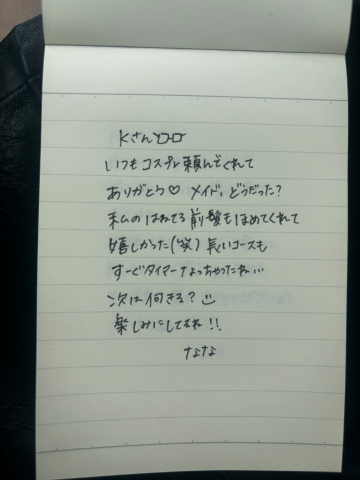 Kさん
いつもコスプレ頼んでくれて
ありがとう♡ メイド、どうだった?
私のはねてる前髪もほめてくれて
嬉しかった(笑) 長いコースも
すーぐタイマーなっちゃったね…
次は何きる?
楽しみにしてるね!!
なな